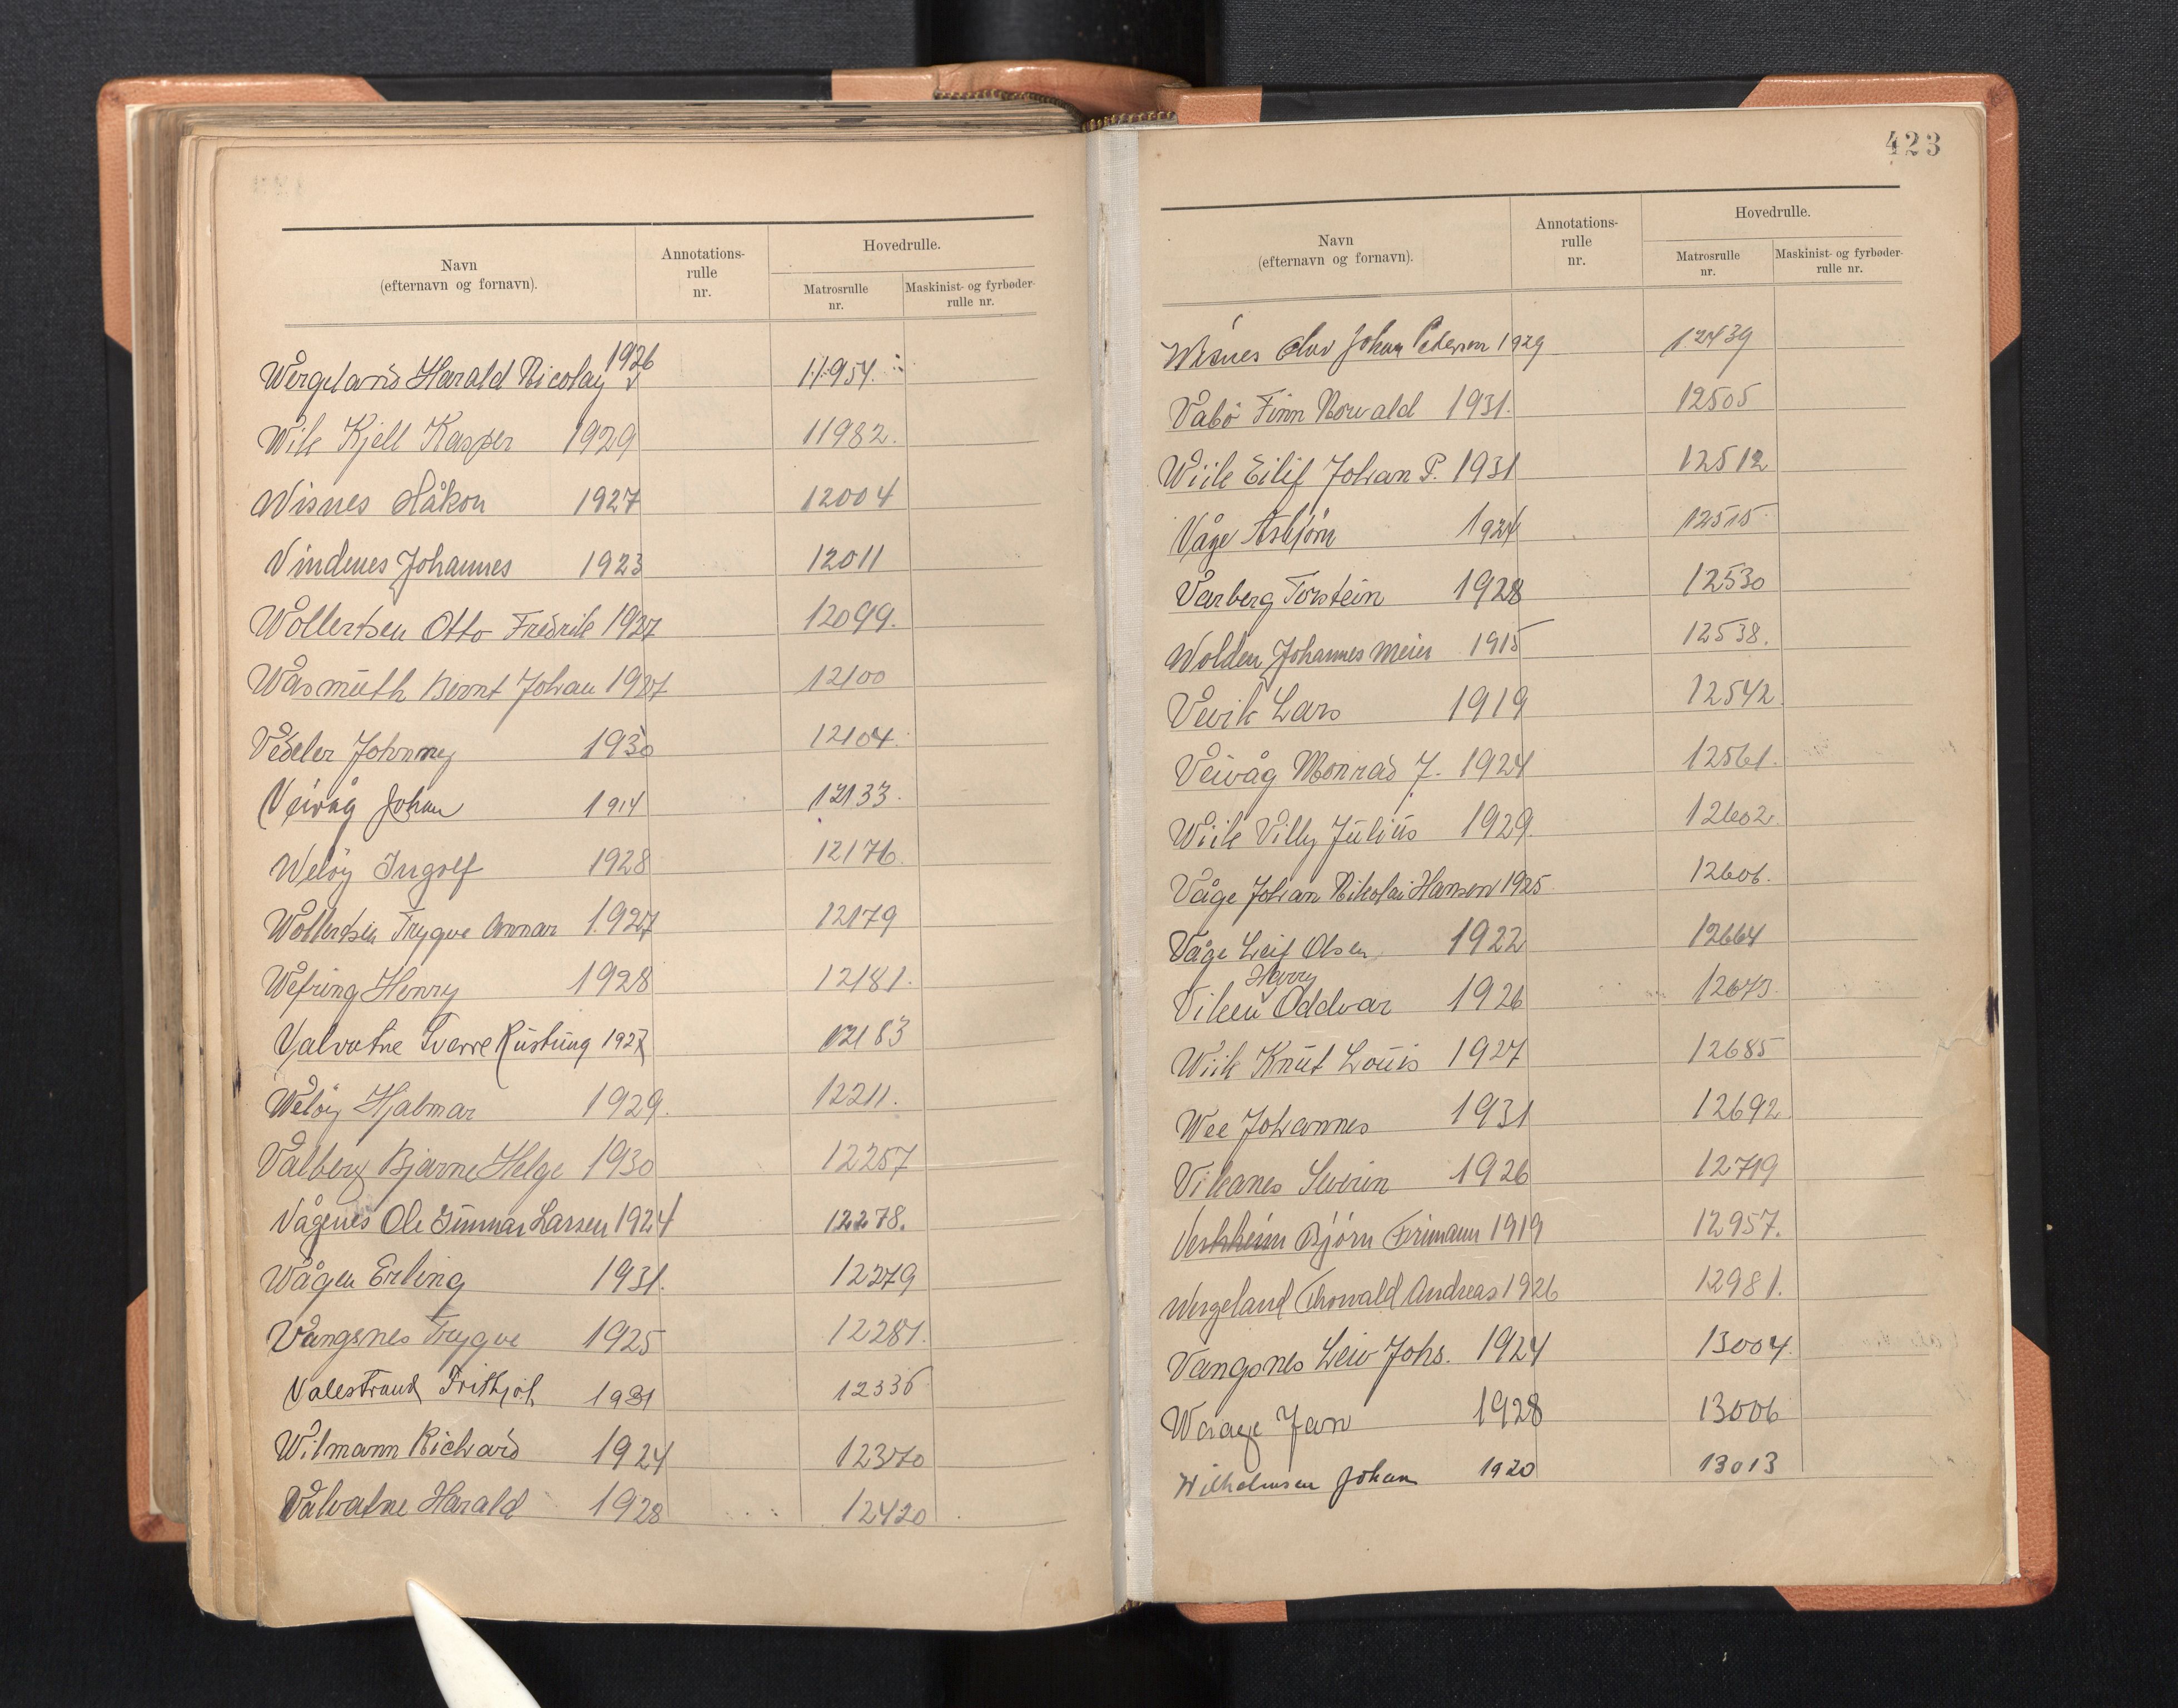 Navn
(efternavn og fornavn).
Annotations-
rulle
nr.
Hovedrulle.
Matrosrulle
nr.
Maskinist- og fyrbøder-
rulle nr.
Wergeland Harald Nicolay 1926 11954.
Wik Kjell Kasper 1929 11982.
Wisnes Håkon 1927 12004
Vindenes Johannes 1923 12011
Wollertsen Otto Fredrik 1927 12099.
Wasmuth Bernt Johan 1927 12100
Vedeler Johnny 1930 12104.
Veivåg Johan 1914 12133.
Weløy Ingolf 1928 12176.
Wollertsen Trygve Annar 1927 12179
Wefring Henry 1928 12181.
Valvatne Sverre Rustung 1927 12183
Weløy Hjalmar 1929. 12211.
Valberg Bjarne Helge 1930 12257
Vågenes Ole Gunnar Larsen 1924 12278.
Wågen Erling 1931. 12279
Vangsnes Trygve 1925 12281.
Valestrand Frithjof 1931 12336
Wilmann Richard 1924 12370
Valvatne Harald 1928 12420
423
Navn
(efternavn og fornavn).
Annotations-
rulle
nr.
Hovedrulle.
Matrosrulle
nr.
Maskinist- og fyrbøder-
rulle nr.
Wisnes Olav Johan Pedersen 1929 12439
Vabø Finn Norvald 1931. 12505
Wiik Eilif Johan P. 1931 12512
Våge Asbjørn 1924 12515
Varberg Torstein 1928 12530
Wolden Johannes Meier 1915 12538.
Vevik Lars 1919 12542.
Veivåg Monrad J. 1924 12561.
Wiik Villy Julius 1929. 12602
Våge Johan Nikolai Hansen 1925 12606.
Våge Leif Olsen 1922 12664
Harry
Viken Oddvar 1926 12673.
Wiik Knut Louis 1927 12685
Wee Johannes 1931 12692.
Vikanes Severin 1926 12719
Bjørn 1919 12957.
Wergeland Thorvald Andreas 1926 12981.
Vangsnes Leiv Johs. 1924 13004.
Jan 1928 13006
Wilhelmsen Johan 1920 13013